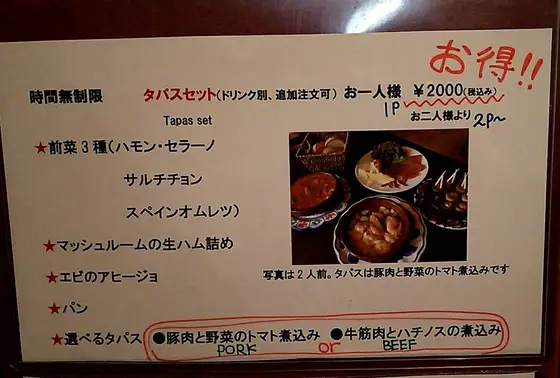 お得!!
時間無制限 タパスセット(ドリンク別、追加注文可) お一人様 ￥2000(税込み)
Tapas set 1P お二人様より 2P~
★前菜3種(ハモン・セラーノ
サルチチョン
スペインオムレツ)
★マッシュルームの生ハム詰め
★エビのアヒージョ
写真は2人前。タパスは豚肉と野菜のトマト煮込みです
★パン
★選べるタパス ●豚肉と野菜のトマト煮込み ●牛筋肉とハチノスの煮込み
PORK or BEEF